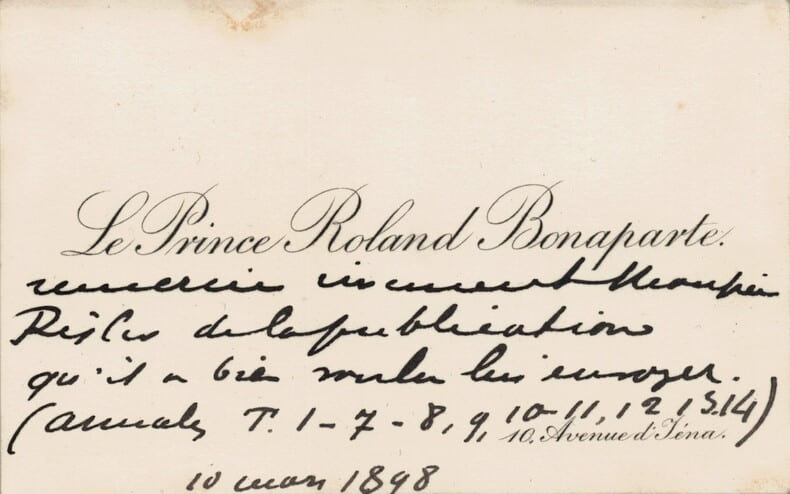 Le Prince Roland Bonaparte.
remercie vivement Monsieur
de la publication
qu'il a bien voulu lui envoyer.
(Annales T. 1-7-8, 9, 10-11, 12 13.14)
10. Avenue d'Jéna.
10 mars 1898